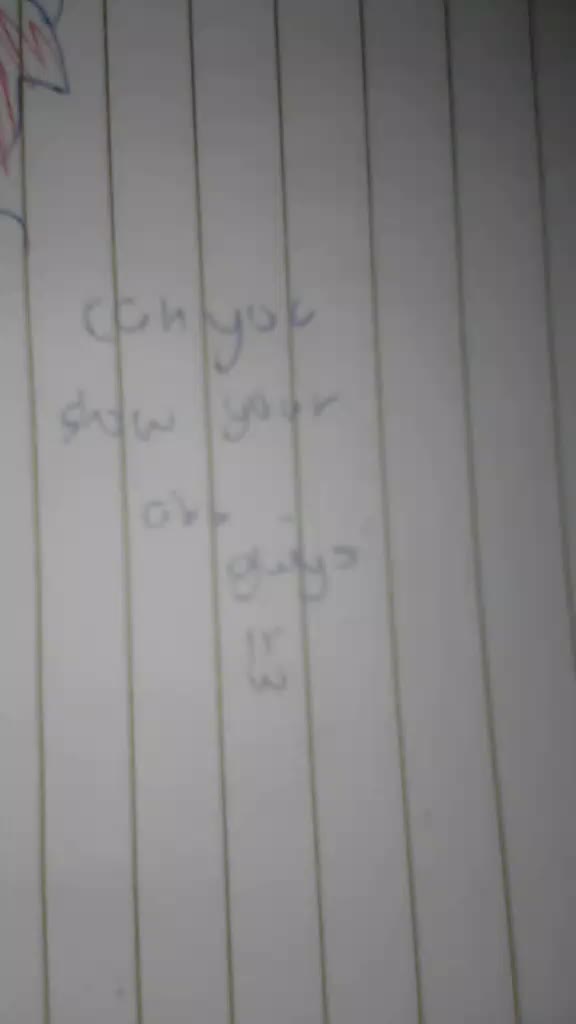 can you
show your
art
guys
:3